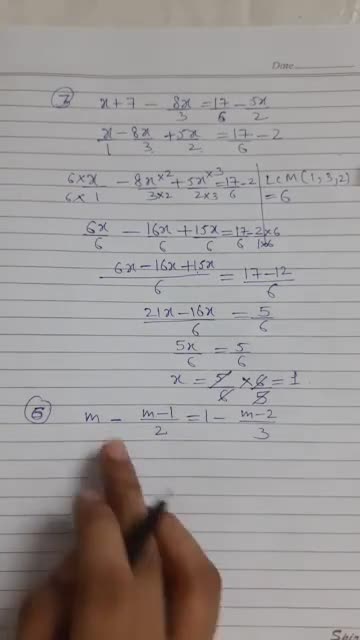 Date
7 x+7 - 8x/3 = 17/6 - 5x/2
x/1 - 8x/3 + 5x/2 = 17/6 - 2
6×x/6×1 - 8x×2/3×2 + 5x×3/2×3 = 17/6 - 2 LCM(1,3,2)
= 6
6x/6 - 16x/6 + 15x/6 = 17/6 - 2×6/1×6
6x-16x+15x/6 = 17-12/6
21x-16x/6 = 5/6
5x/6 = 5/6
x = 5/6 × 6/5 = 1
m - m-1/2 = 1 - m-2/3